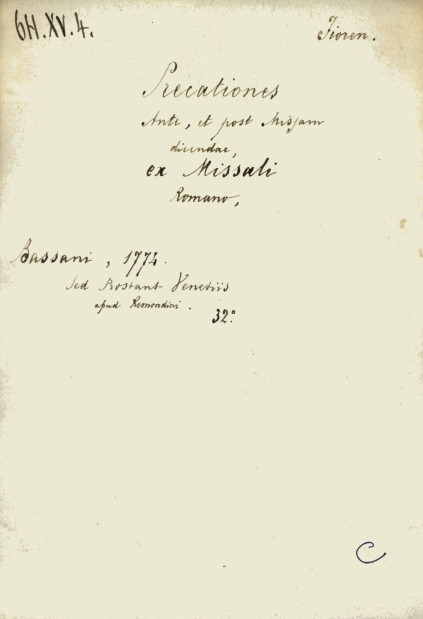 6H.XV.4.
Fioren.
Precationes
Ante, et post Missam
dicendae,
ex Missali
Romano,
Bassani, 1774.
Sed Prostant Venetiis
apud Remondini.
32º
C